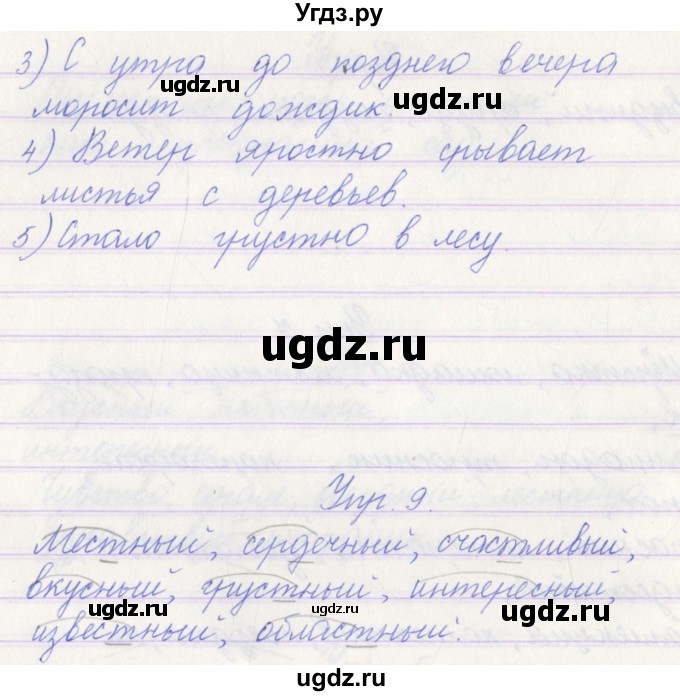 Угдз.ру
3) С утра до позднего вечера
моросит дождик.
ugdz.ru
ugdz.ru
4) Ветер яростно срывает
листья с деревьев.
5) Стало грустно в лесу.
ugdz.ru
Упр. 9.
Местный, сердечный, счастливый,
вкусный, грустный, интересный,
ugdz.ru
ugdz.ru
ugdz.ru
известный, областный.
ugdz.ru
ugdz.ru